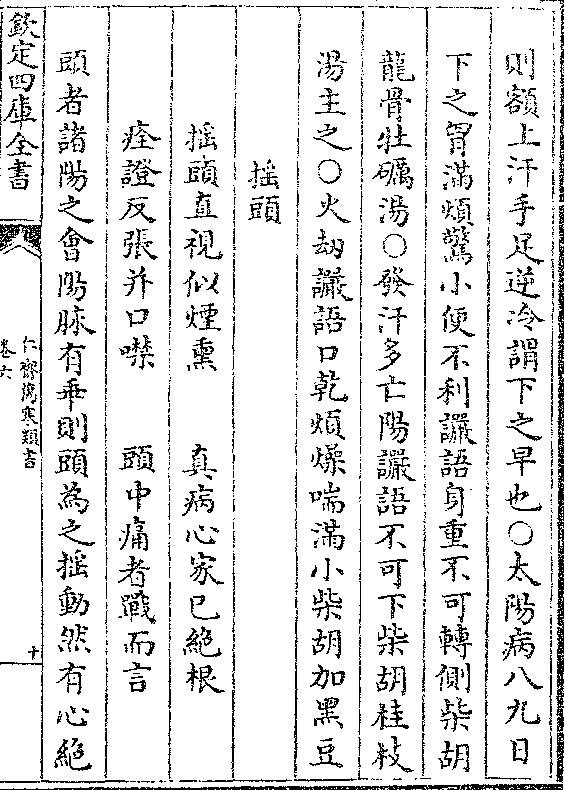 則額上汗手足逆冷謂下之早也〇太陽病八九日
下之胷滿煩驚小便不利讝語身重不可轉側柴胡
龍骨牡礪湯〇發汗多亡陽讝語不可下柴胡桂枝
湯主之〇火劫讝語口乾煩燥喘滿小柴胡加黑豆
揺頭
揺頭直視似煙熏　真病心家已絶根
痓證反張并口噤　頭中痛者戰而言
頭者諸陽之會陽脉有乖則頭為之揺動然有心絶
欽定四庫全書
仁齋傷寒類書
卷六
十